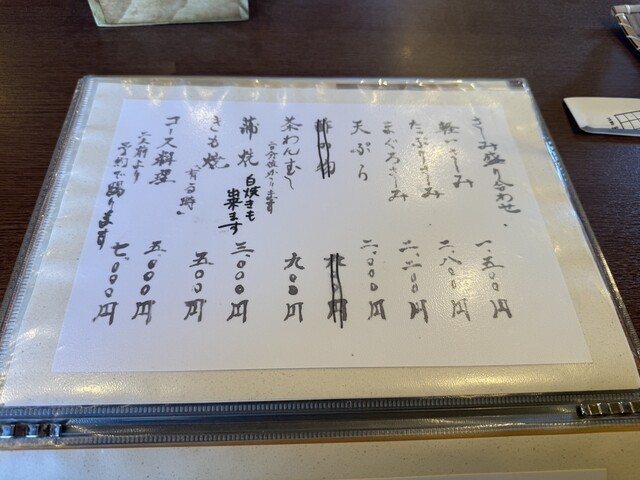 さしみ盛り合わせ、
軽いさしみ 一、五〇〇円
たっぷりさしみ 二、八〇〇円
まぐろさしみ 二、二〇〇円
天ぷら 二、〇〇〇円
茶わんむし 九〇〇円
蒲焼 三、〇〇〇円
白焼きも
出来ます
きも焼 五〇〇円
「有る時」
コース料理 五、〇〇〇円
二人前より
予約で賜ります 七、〇〇〇円